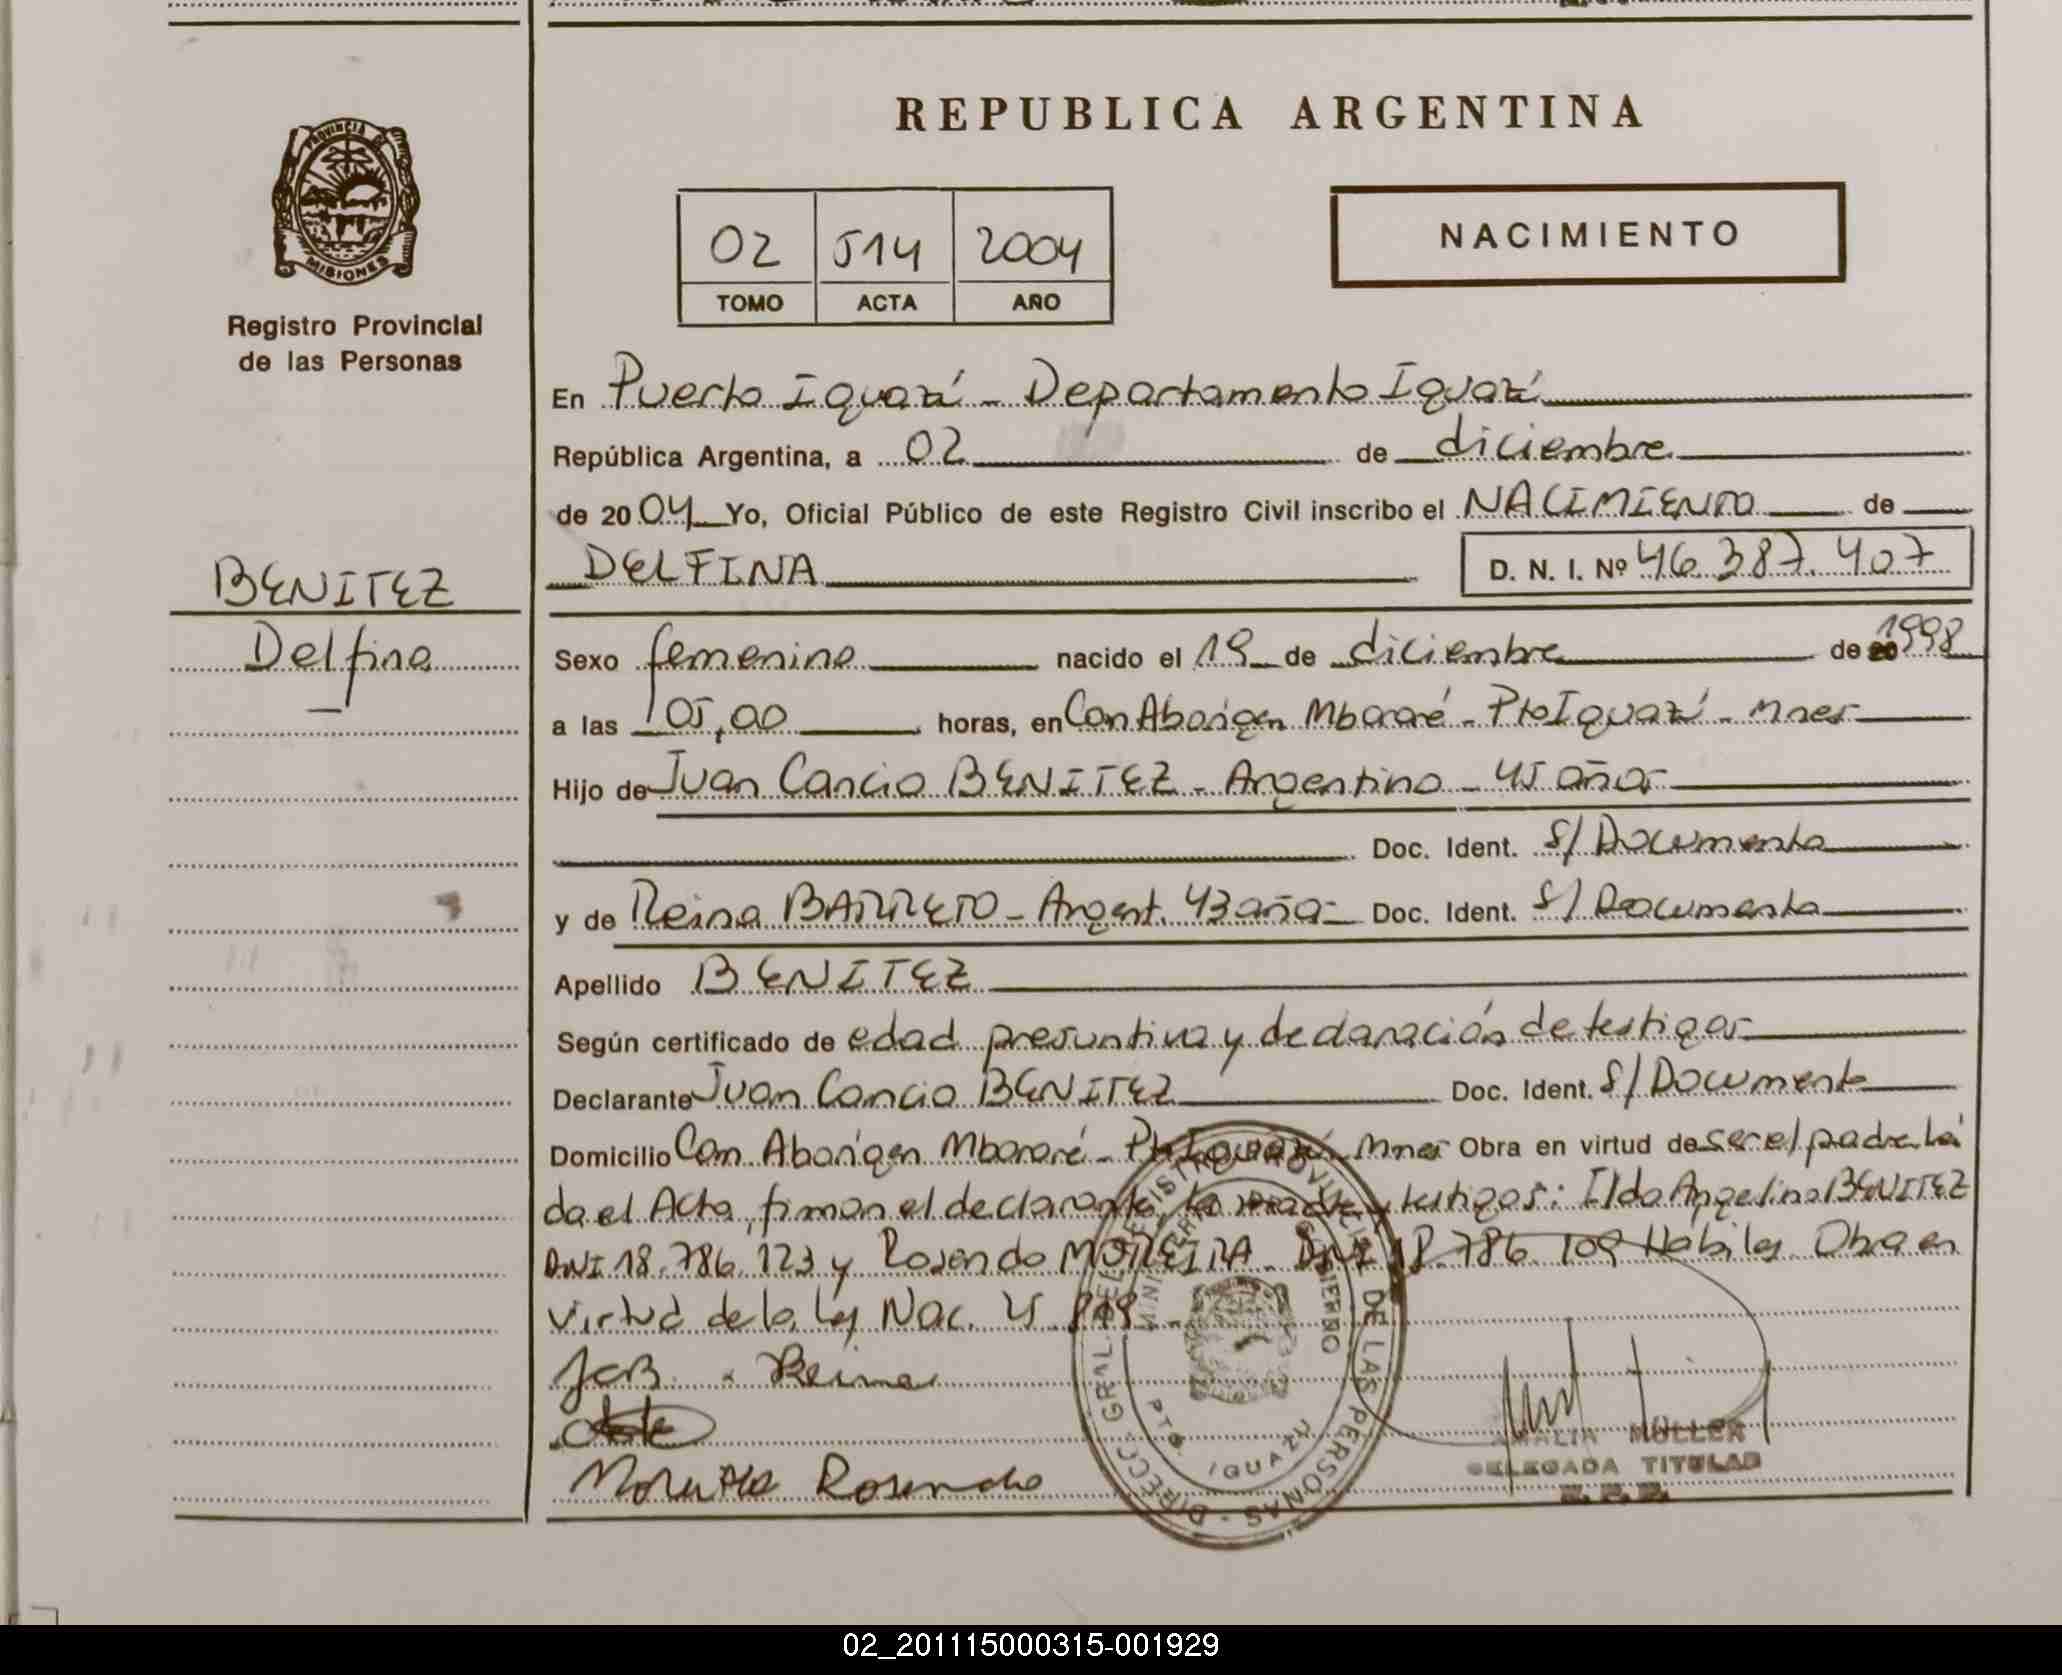 PROVINCIA DE
MISIONES
Registro Provincial
de las Personas
BENITEZ
Delfina
REPUBLICA ARGENTINA
02 514 2004
TOMO ACTA AÑO
NACIMIENTO
En Puerto Iguazú - Departamento Iguazú
República Argentina, a 02 de diciembre
de 2004 Yo, Oficial Público de este Registro Civil inscribo el NACIMIENTO de
DELFINA D. N. I. Nº 46.387.407
Sexo femenino nacido el 19 de diciembre de 1998
a las 05,00 horas, en Com Aborigen Mbororé - Pto Iguazú - Mnes
Hijo de Juan Cancio BENITEZ - Argentino - 45 años
Doc. Ident. S/ Documento
y de Reina BARRETO - Argent. 43 años Doc. Ident. S/ Documento
Apellido BENITEZ
Según certificado de edad presuntiva y declaración de testigos
Declarante Juan Cancio BENITEZ Doc. Ident. S/ Documento
Domicilio Com Aborigen Mbororé - Pto Iguazú Mnes Obra en virtud de ser el padre. Leí
da el Acta, firman el declarante, la madre y testigos: Ilda Angelina BENITEZ
DNI 18.786.123 y Rosendo MOREIRA - DNI 18.786.109 Hábiles Obra en
virtud de la Ley Nac.
JCB. Reina
Rosendo
DIRECC. GRAL. DEL REGISTRO PROVINCIAL DE LAS PERSONAS
PTO. IGUAZU
AMALIA MULLER
DELEGADA TITULAR
02_201115000315-001929